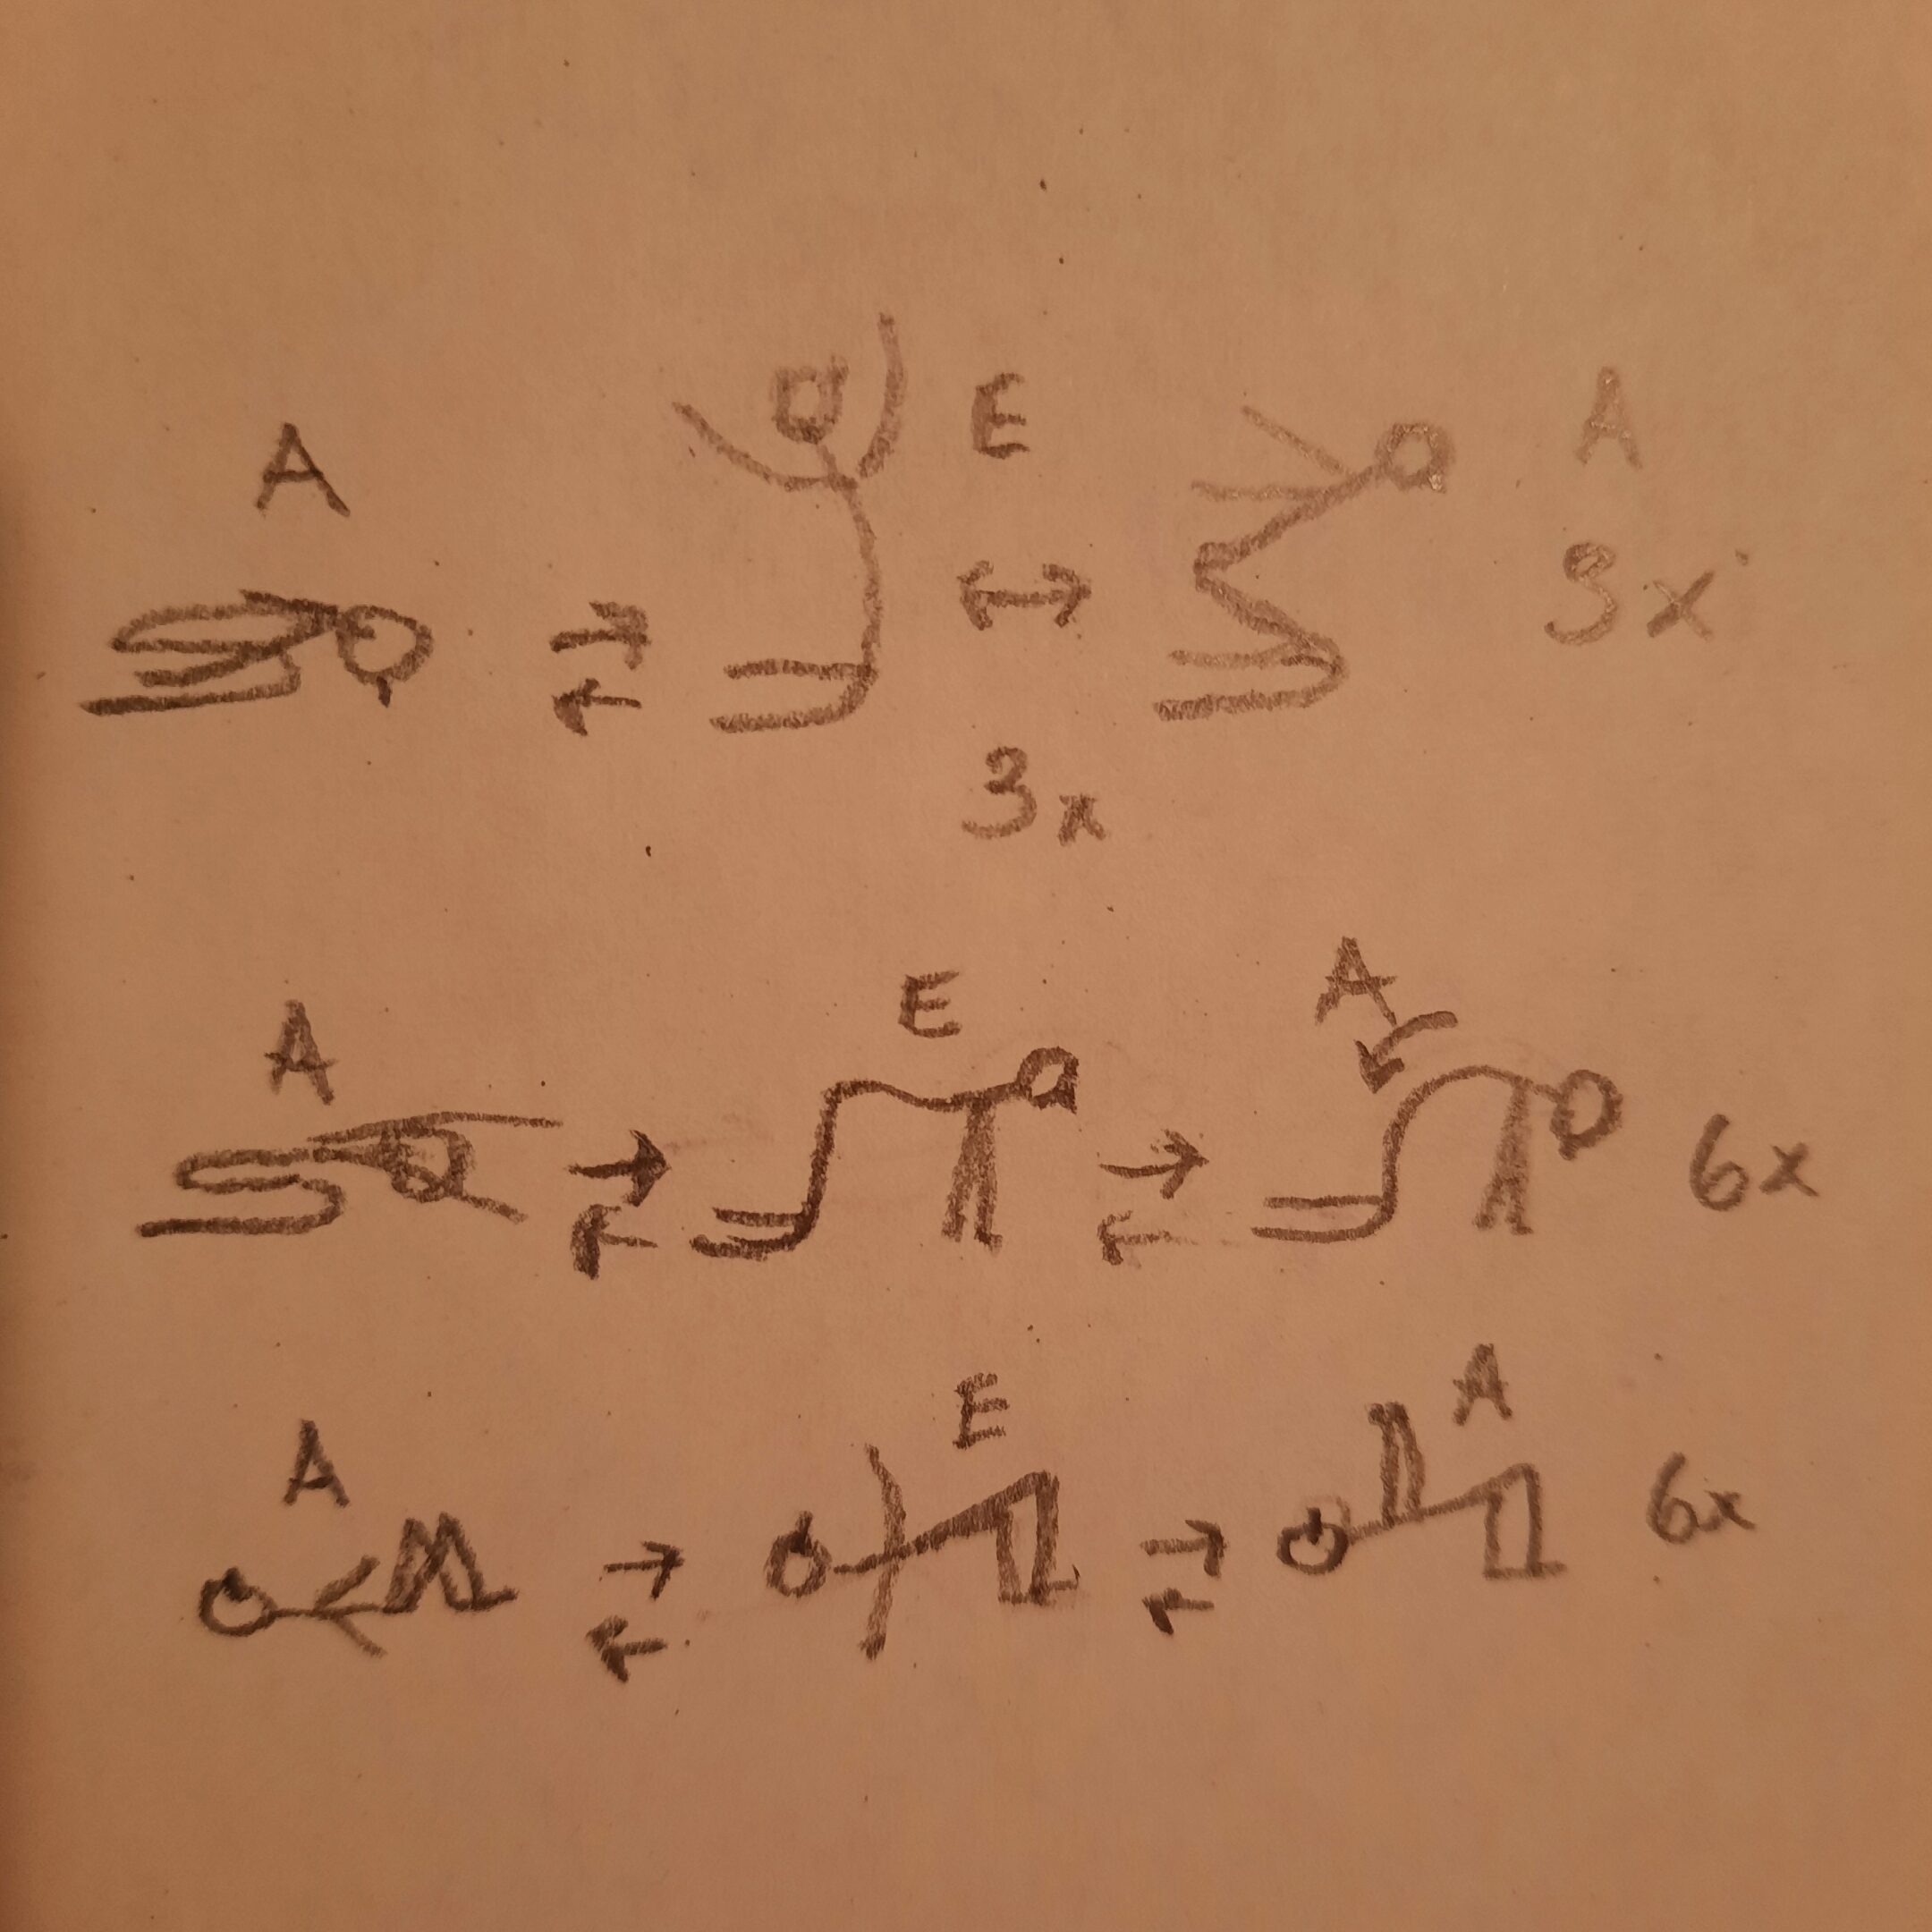 A E A
3x
3x
A E A
6x
A E A
6x